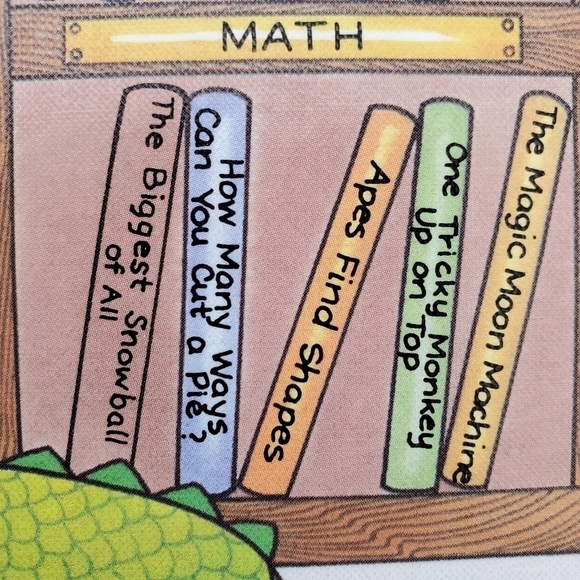 MATH
The Biggest Snowball
of All
How Many Ways
Can You Cut a Pie?
Apes Find Shapes
One Tricky Monkey
Up on Top
The Magic Moon Machine